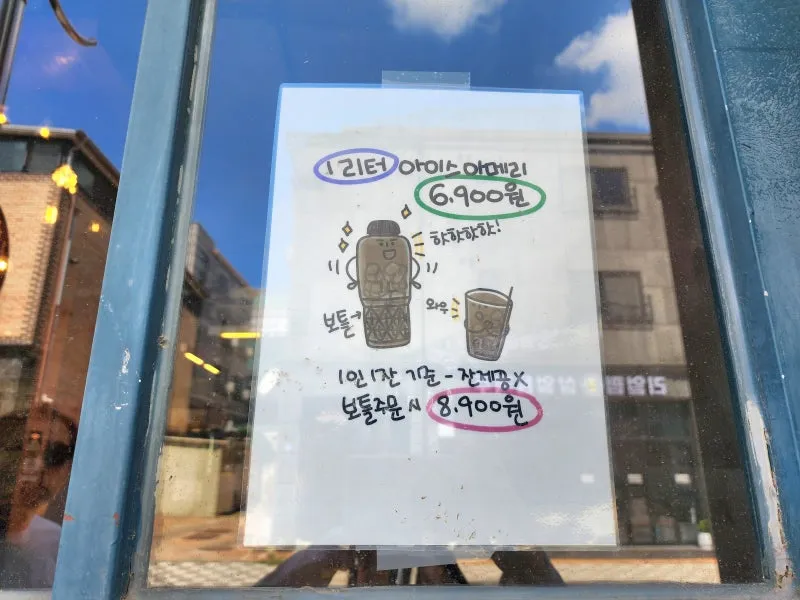 1리터 아이스아메리
6.900원
핫핫핫핫!
보틀→
와우
1인 1잔 기준 - 잔제공X
보틀주문 시 8.900원